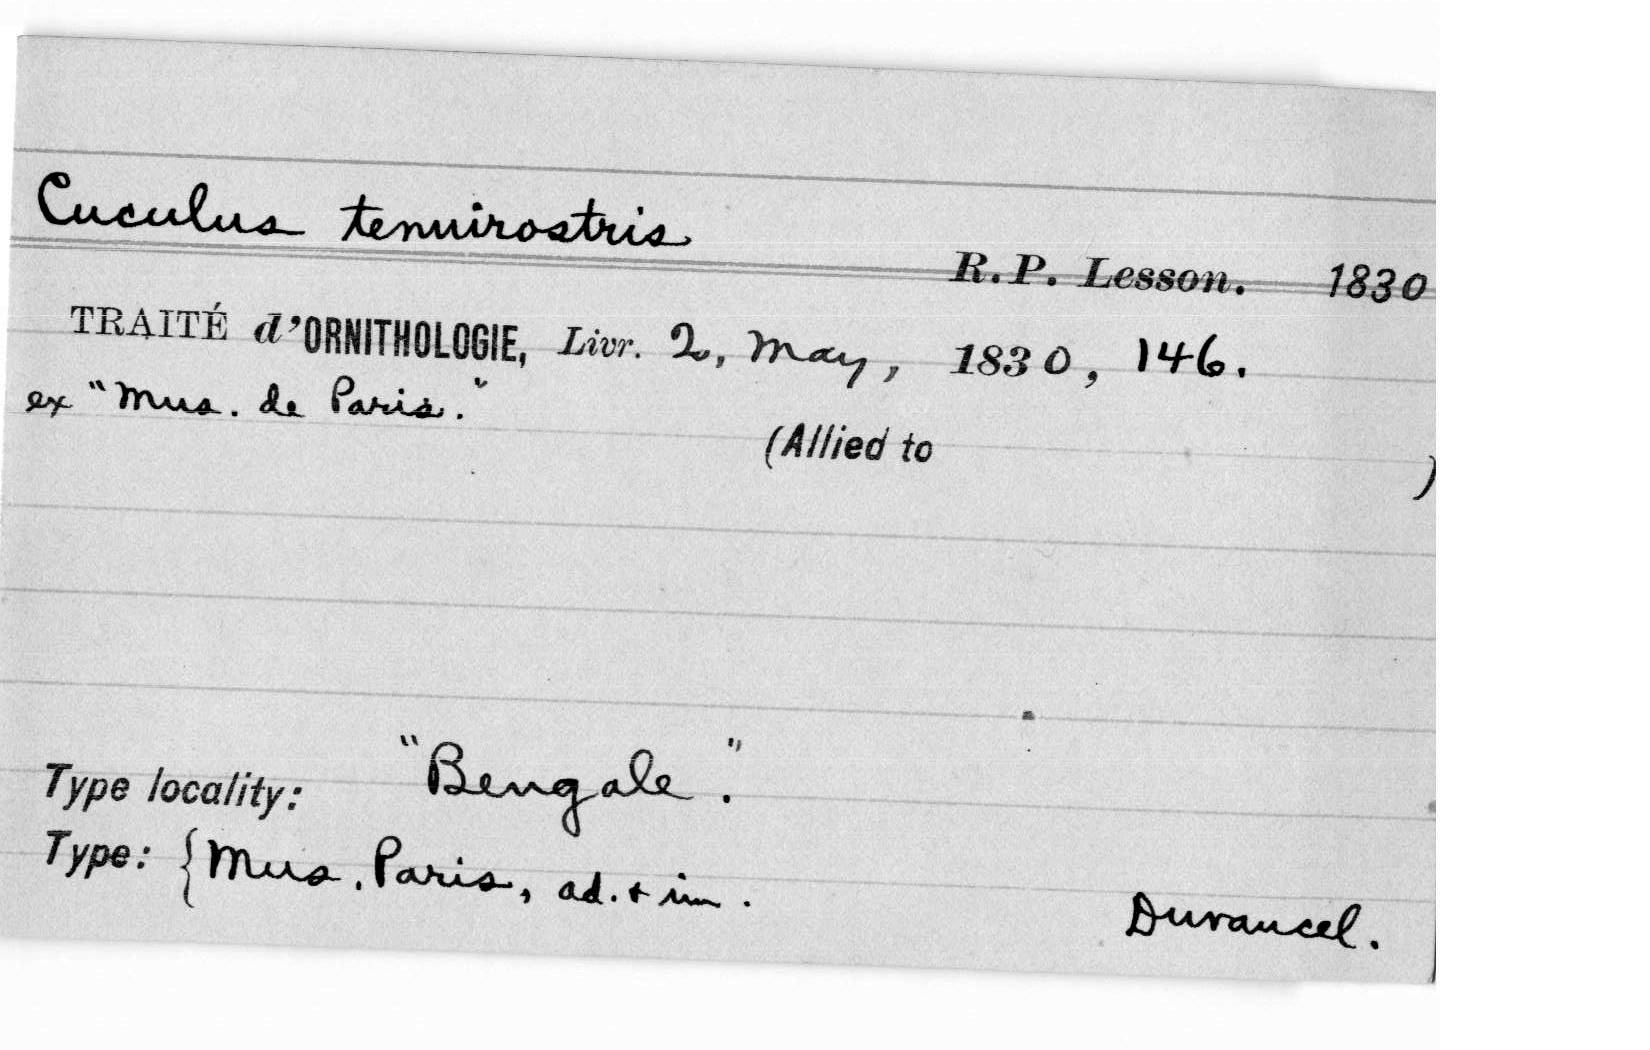 Cuculus tenuirostris
R.P. Lesson. 1830
TRAITÉ d'ORNITHOLOGIE, Livr. 2, May, 1830, 146.
ex "Mus. de Paris."
(Allied to )
Type locality: "Bengale".
Type: {Mus. Paris, ad. + im.
Duvaucel.